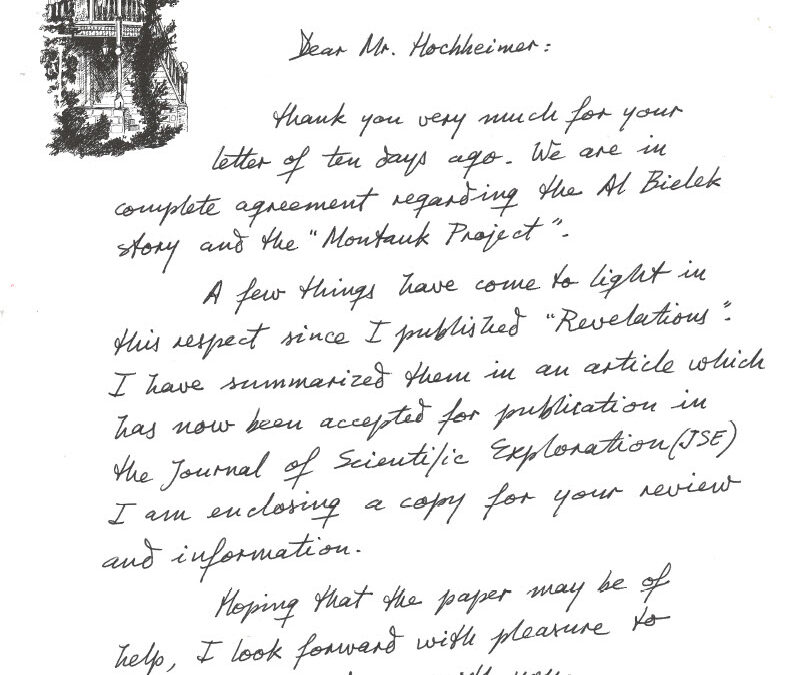 Dear Mr. Hochheimer:
Thank you very much for your
letter of ten days ago. We are in
complete agreement regarding the Al Bielek
story and the "Montauk Project".
A few things have come to light in
this respect since I published "Revelations".
I have summarized them in an article which
has now been accepted for publication in
the Journal of Scientific Exploration (JSE)
I am enclosing a copy for your review
and information.
Hoping that the paper may be of
help, I look forward with pleasure to